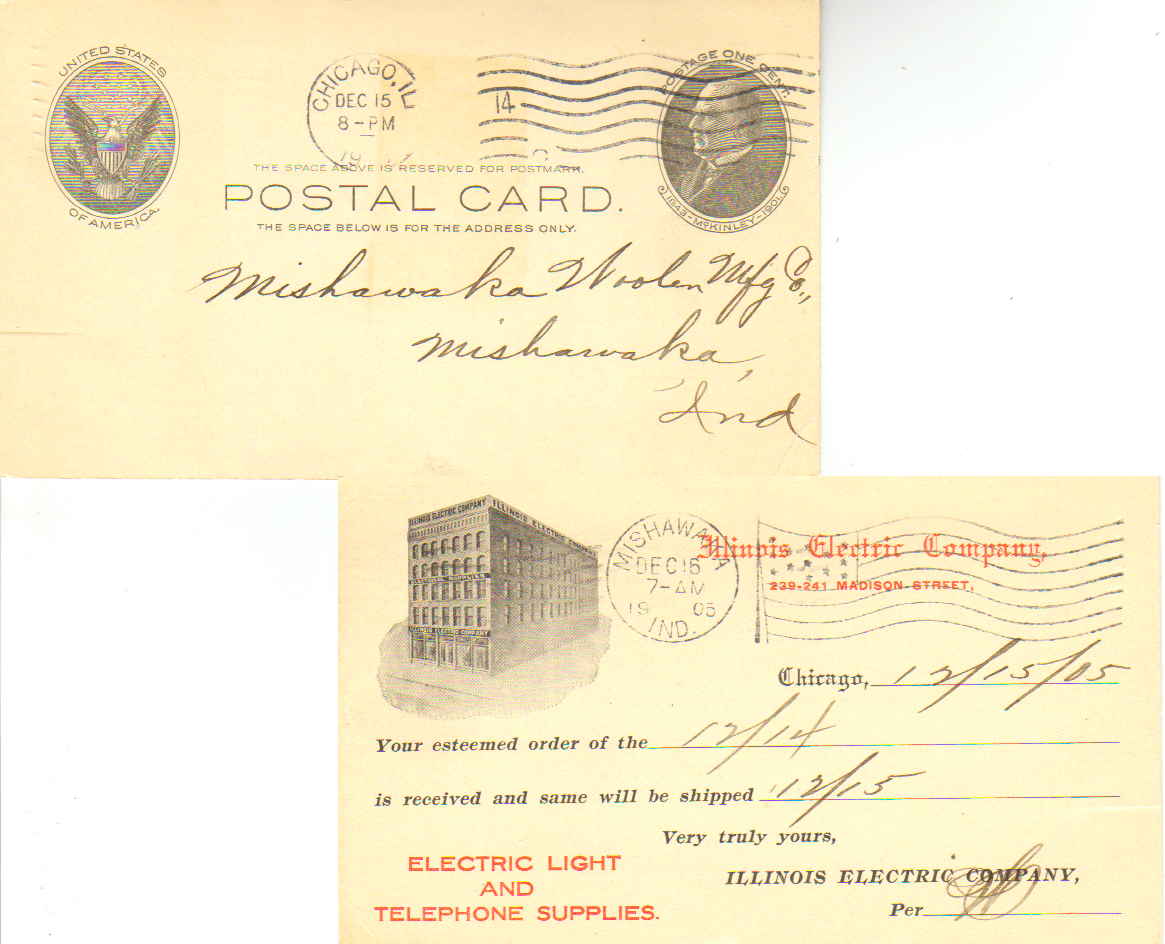 UNITED STATES
OF AMERICA.
CHICAGO, IL
DEC 15
8-PM
14
POSTAGE ONE CENT.
1843-McKINLEY-1901.
THE SPACE ABOVE IS RESERVED FOR POSTMARK.
POSTAL CARD.
THE SPACE BELOW IS FOR THE ADDRESS ONLY.
Mishawaka Woolen Mfg Co.,
Mishawaka,
Ind
ILLINOIS ELECTRIC COMPANY ILLINOIS ELECTRIC COMPANY
ELECTRICAL SUPPLIES
ILLINOIS ELECTRIC COMPANY
MISHAWAKA
DEC 16
7-AM
19 05
IND.
Illinois Electric Company,
239-241 MADISON STREET,
Chicago, 12/15/05
Your esteemed order of the 12/14
is received and same will be shipped 12/15
Very truly yours,
ELECTRIC LIGHT
AND
TELEPHONE SUPPLIES.
ILLINOIS ELECTRIC COMPANY,
Per